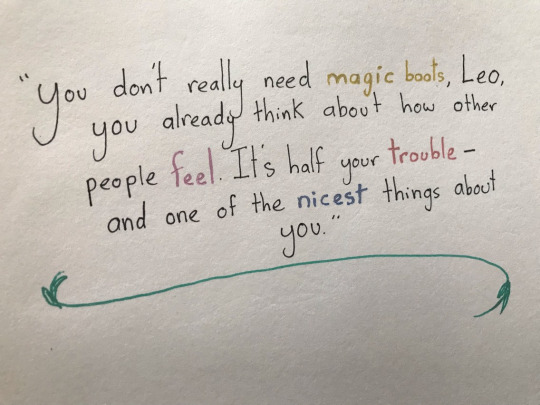 "You don't really need magic boots, Leo,
you already think about how other
people feel. It's half your trouble –
and one of the nicest things about
you."